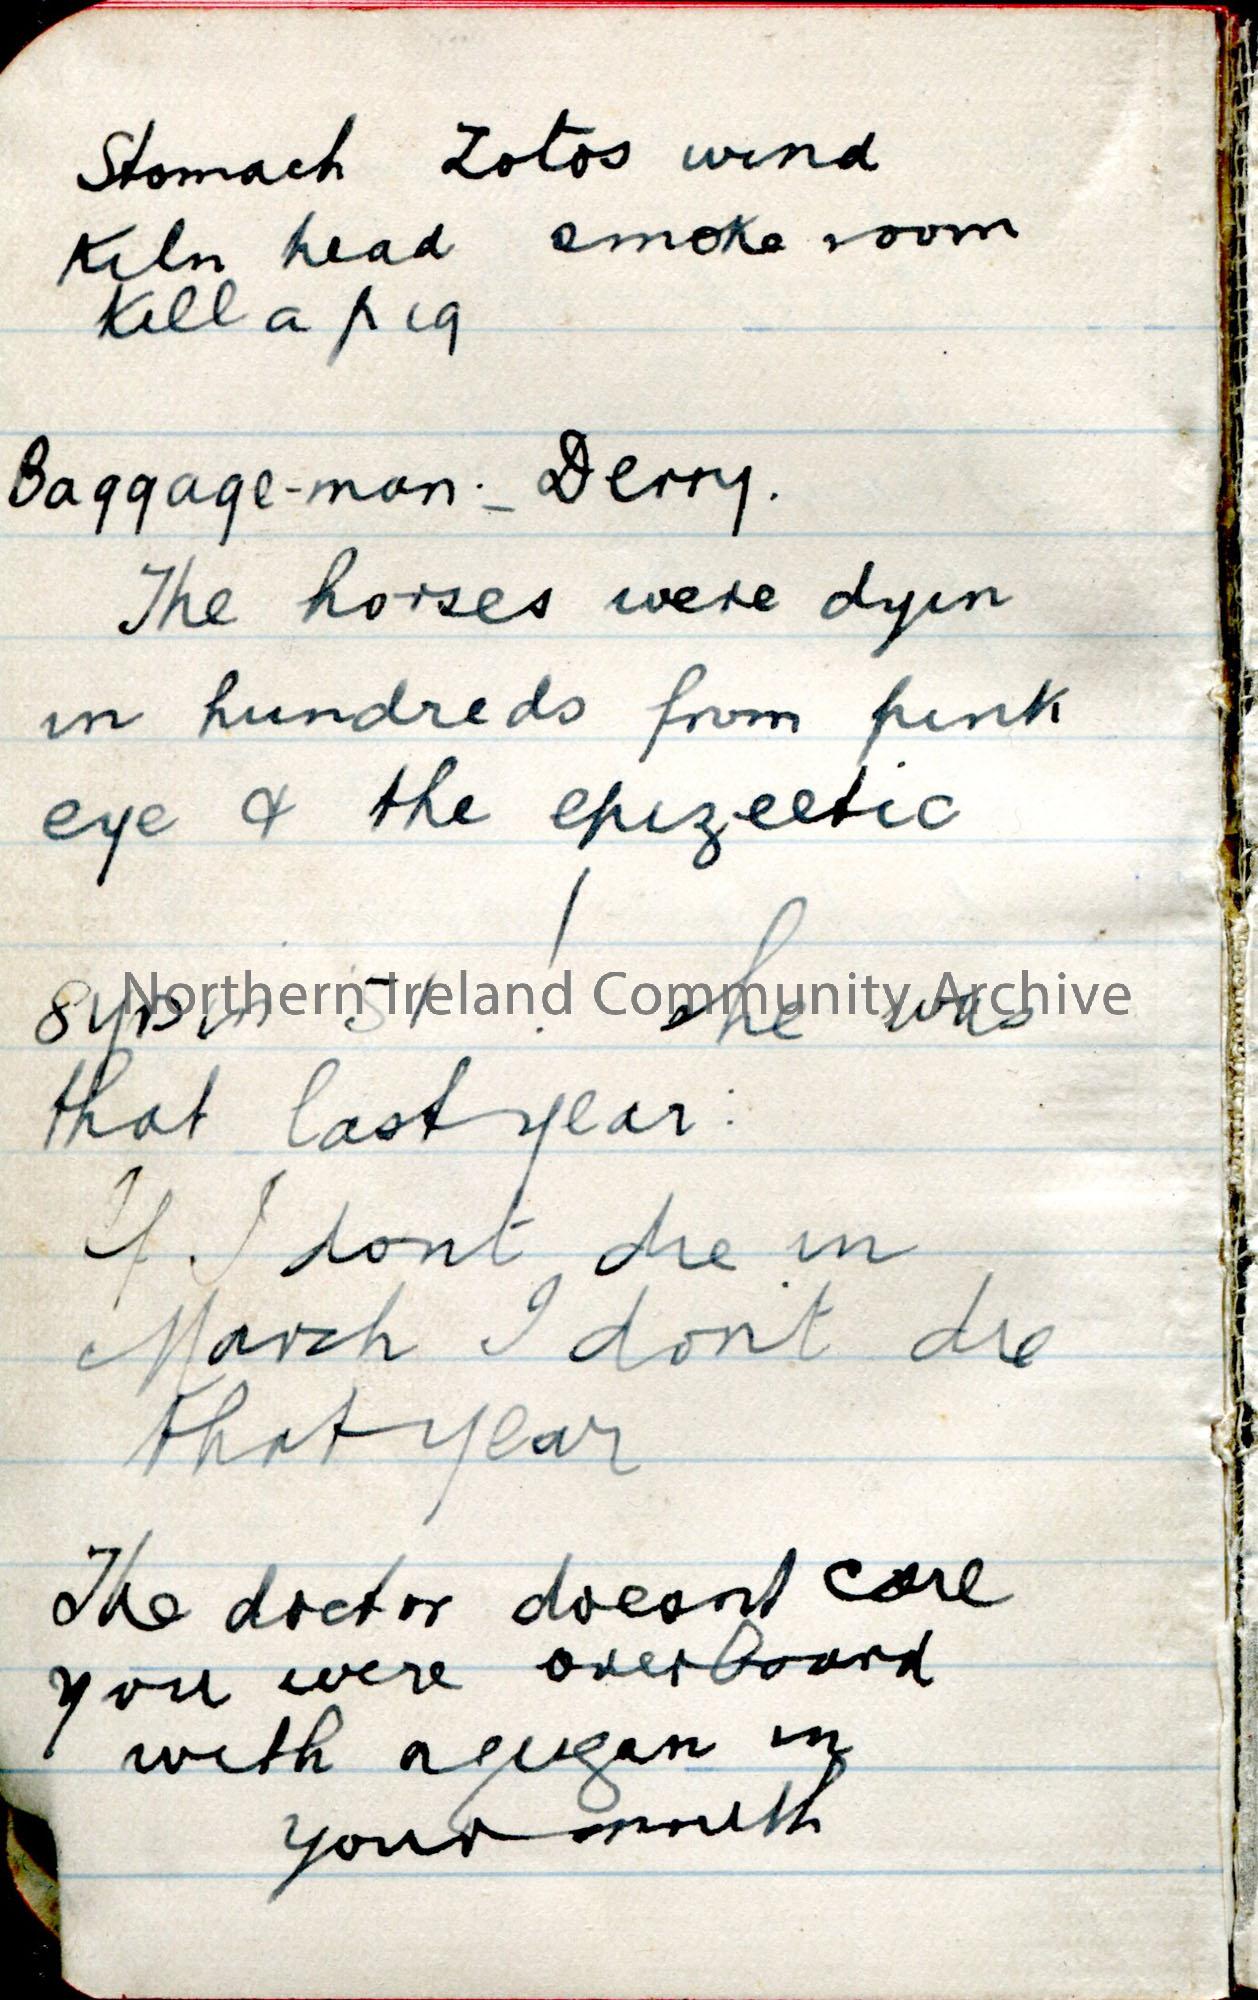 Stomach Zotos wind
Kiln head smoke room
Kill a pig
Baggage-man:- Derry.
The horses were dyin
in hundreds from pink
eye & the epizeetic
Northern Ireland Community Archive
51 ! she was
that last year:
If I dont die in
March I don't die
that year
The doctor doesnt care
you were overboard
with in
your mouth